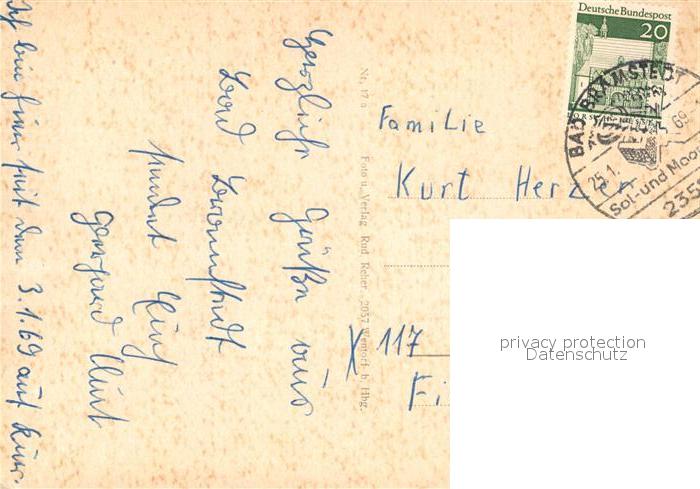 Herzliche Grüße aus
Bad Bramstedt
sendet Euch
Gerhard
Ich bin hier seit dem 3.1.69 auf Kur.
Nr. 17 a Foto u. Verlag Rud. Reher, 2057 Wentorf b. Hbg.
Deutsche Bundespost
20
BAD BRAMSTEDT
25.1. 69
Sol- und Moor
235
Familie
Kurt Herzer
X 117
Fi
privacy protection
Datenschutz